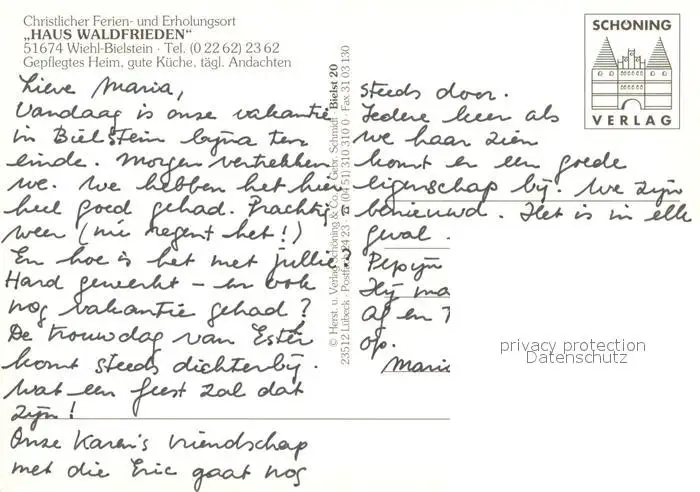 Christlicher Ferien- und Erholungsort
„HAUS WALDFRIEDEN“
51674 Wiehl-Bielstein · Tel. (0 22 62) 23 62
Gepflegtes Heim, gute Küche, tägl. Andachten
Lieve Maria,
Vandaag is onze vakantie
in Bielstein bijna ten
einde. Morgen vertrekken
we. We hebben het hier
heel goed gehad. Prachtig
weer (nu regent het!)
En hoe is het met jullie?
Hard gewerkt – en ook
nog vakantie gehad?
De trouwdag van Esther
komt steeds dichterbij.
Wat een feest zal dat
zijn!
Onze Karen's vriendschap
met die Eric gaat nog
© Herst. u. Verlag Schöning & Co. · Gebr. Schmidt · Bielst 20
23512 Lübeck · Postfach 24 23 · ☎ (04 51) 310 310 0 · Fax 31 03 130
steeds door.
Iedere keer als
we haar zien
komt er een goede
eigenschap bij. We zijn
benieuwd. Het is in elk
geval
Pepijn
Hij ma
Af en T
op.
Maria
SCHÖNING
VERLAG
privacy protection
Datenschutz